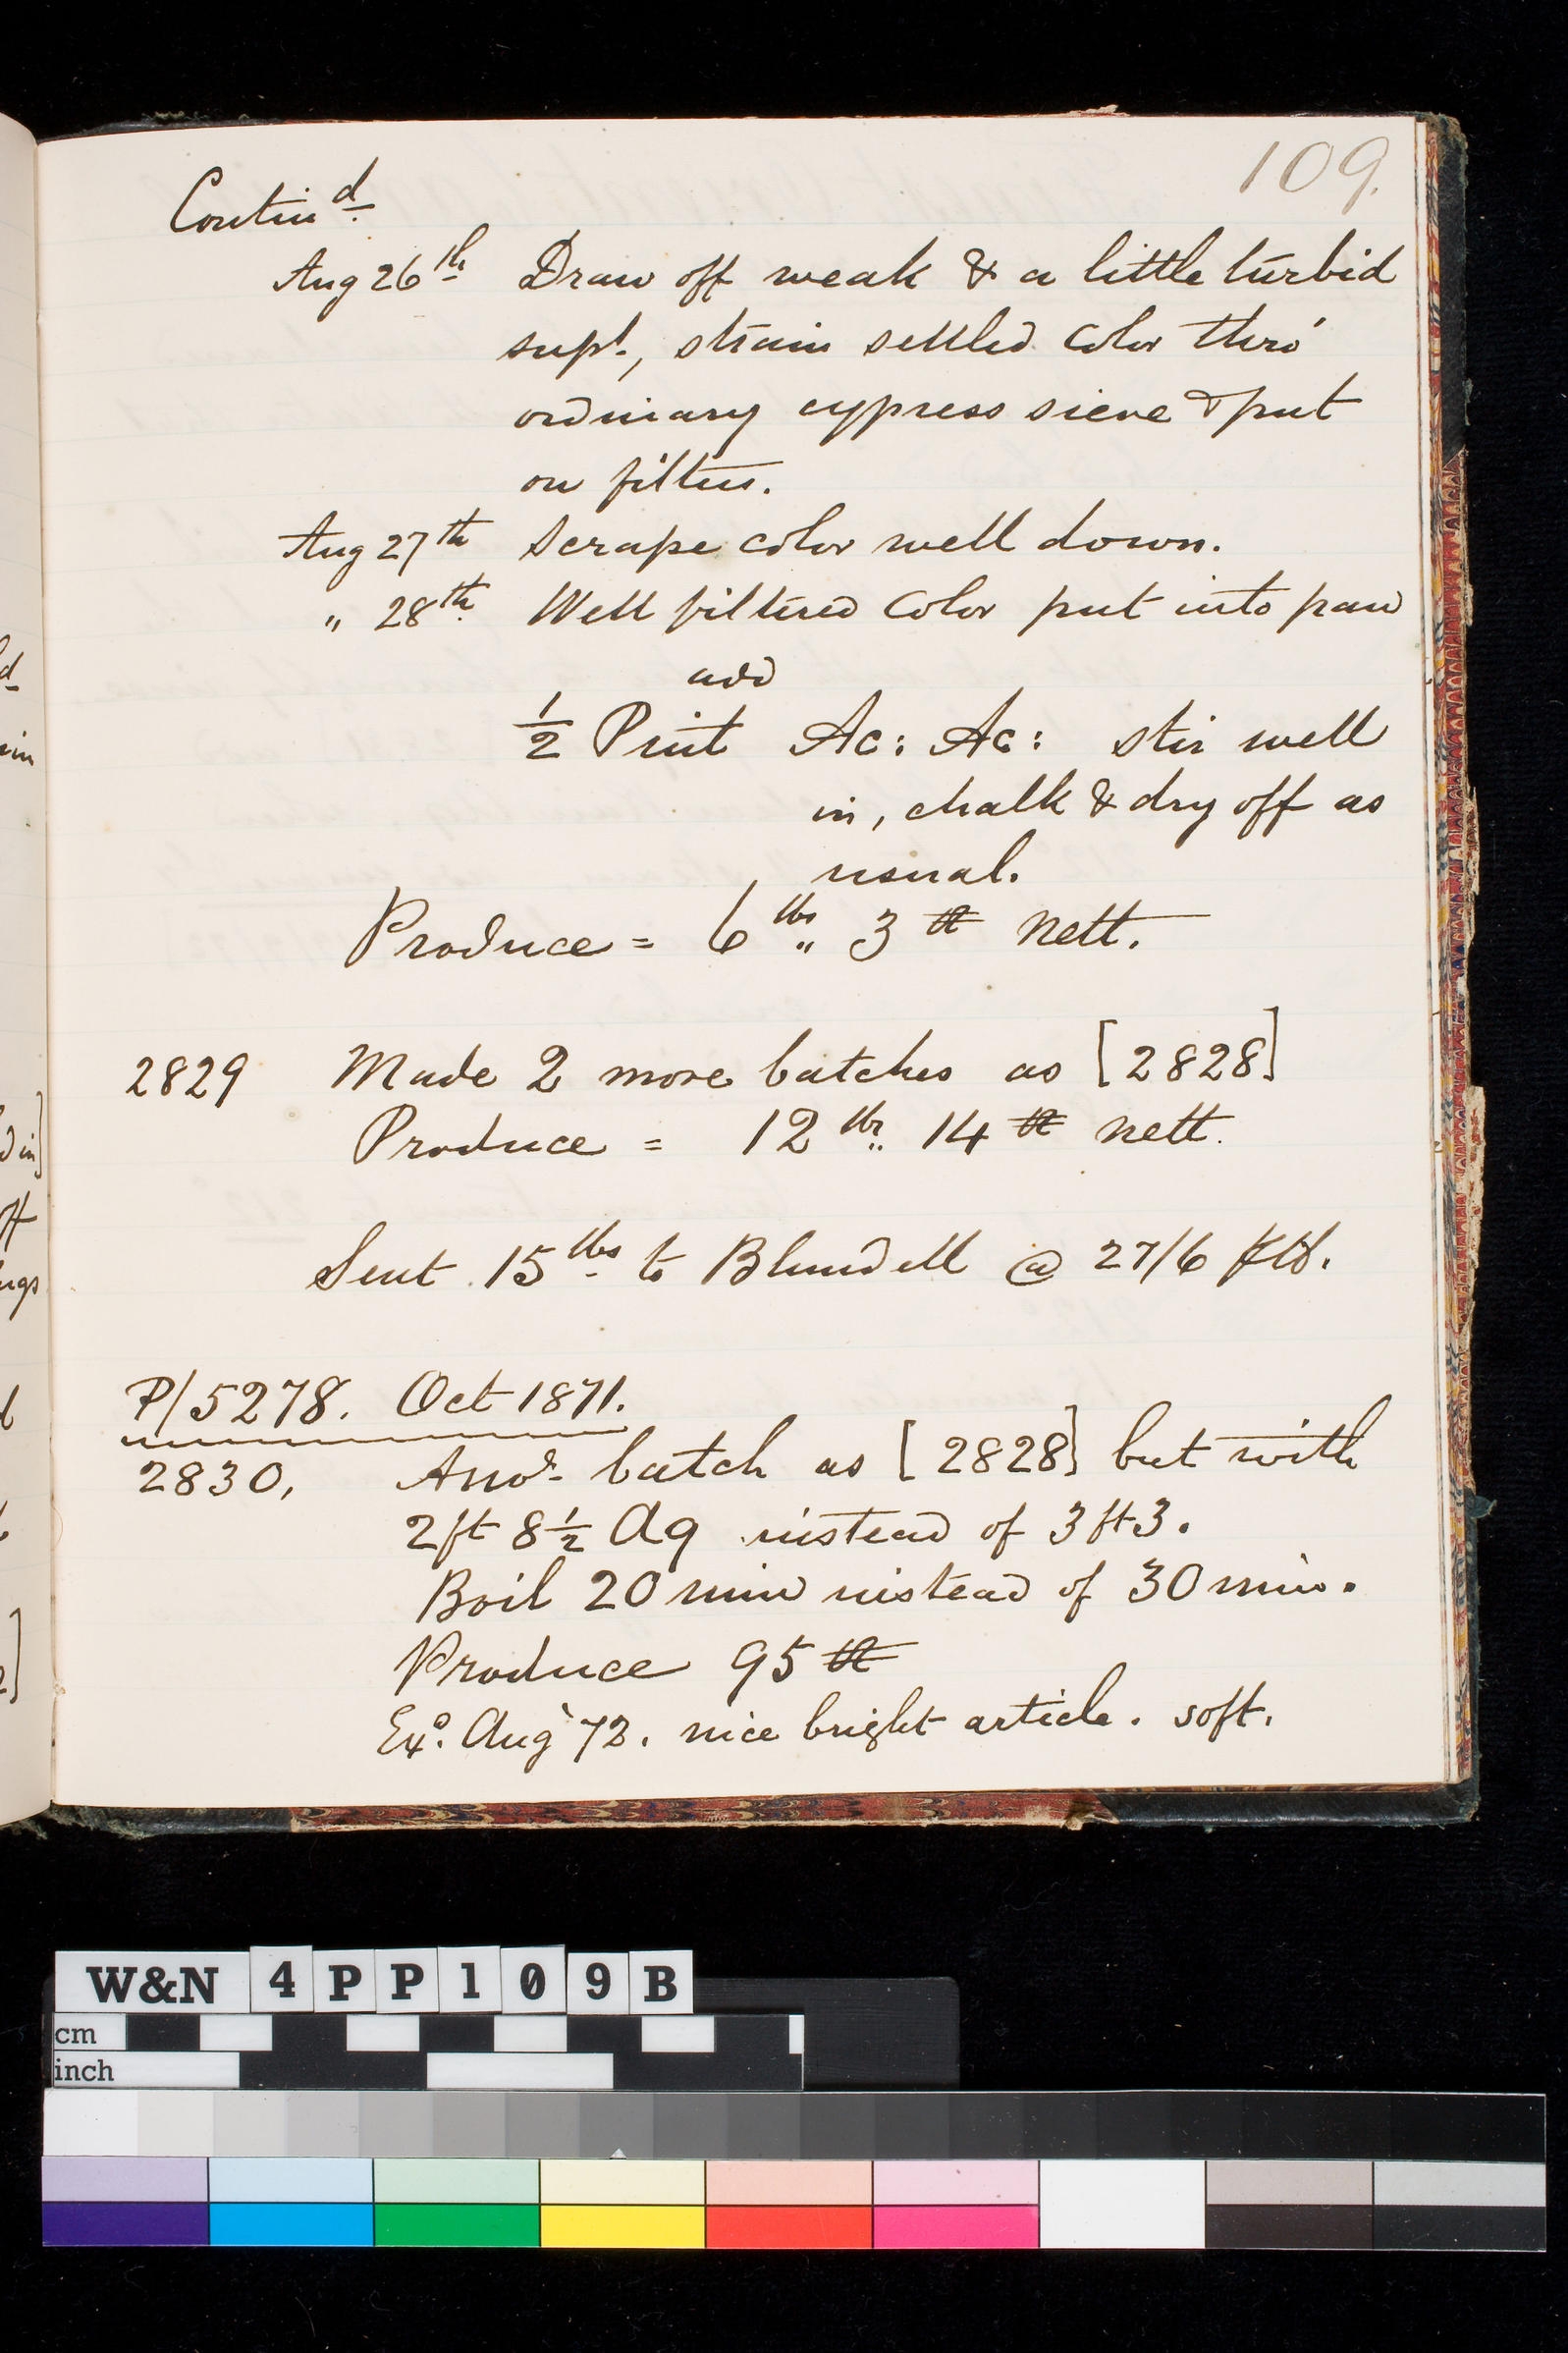 109.
Contin^d.
Aug 26^th Draw off weak & a little turbid
supt., strain settled color thro'
ordinary cypress sieve & put
on filters.
Aug 27^th Scrape color well down.
" 28^th Well filtered color put into pan
add
½ Pint Ac: Ac: stir well
in, chalk & dry off as
usual.
Produce = 6 lbs " 3 ℔ nett.
2829 Made 2 more batches as [2828]
Produce = 12 lbs " 14 ℔ nett.
Sent 15 lbs to Blundell @ 27/6
P/5278. Oct 1871.
2830, Ano^r. batch as [2828] but with
2ft 8½ Aq instead of 3ft3.
Boil 20 min instead of 30 min.
Produce 95 ℔
Ex^d. Aug '72. nice bright article. soft.
W&N 4PP109B
cm
inch